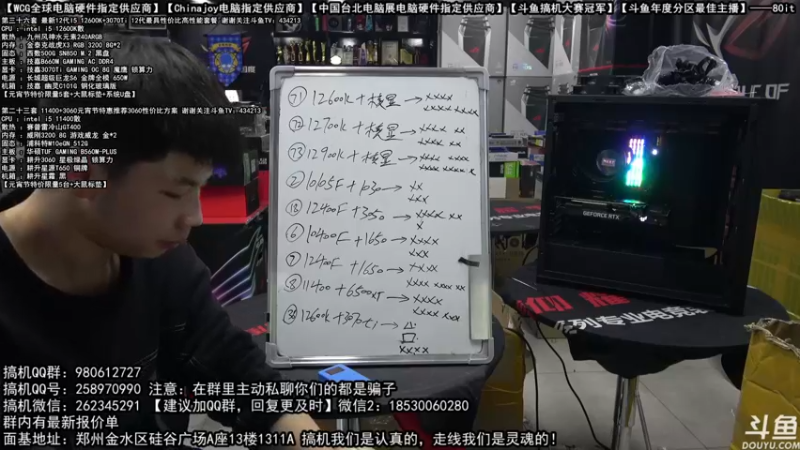 【WCG全球电脑硬件指定供应商】【Chinajoy电脑指定供应商】【中国台北电脑展电脑硬件指定供应商】【斗鱼搞机大赛冠军】【斗鱼年度分区最佳主播】——80it
第三十六套 最新12代i5 12600K+3070Ti 12代最具性价比高性能套餐 谢谢关注斗鱼TV: 434213
CPU : intel i5 12600K散
散热 : 九州风神水元素240ARGB
内存 : 金泰克战虎X3 RGB 3200 8G*2
固态 : 西数500G SN850 M.2 黑盘
主板 : 技嘉B660M GAMING AC DDR4
显卡 : 技嘉3070Ti GAMING OC 8G 魔鹰 锁算力
电源 : 长城超级巨龙S6 金牌全模 650W
机箱 : 技嘉 幽灵C101G 钢化玻璃版
【元宵节特价限量5套+大鼠标垫+系统U盘】
第二十三套 11400+3060元宵节特惠推荐3060性价比方案 谢谢关注斗鱼TV: 434213
CPU : intel i5 11400散
散热 : 赛普雷冷山GT400
内存 : 威刚3200 8G 游戏威龙 金*2
固态 : 浦科特M10eGN_512G
主板 : 华硕TUF GAMING B560M-PLUS
显卡 : 耕升3060 星极绿晶 锁算力
电源 : 耕升星源T650 铜牌
机箱 : 耕升星霜 黑
【元宵节特价限量5台+大鼠标垫】
71 12600K+核显→xxxx
xxxx xxxx
72 12700K+核显→xxxx xx
xxxx xxxx
73 12900K+核显→xxxx xx
② 10105F+1030→xx
xxx
18 12400F+3050→xxxx xx
x
⑥ 10400F+1650→xxxx
xxx
⑦ 12400F+1650→xxxx
xxxx xxxx xx
⑧ 11400+6500XT→xxxx
xxxx xxx
36 12600K+3070ti→
xxxx
GEFORCE RTX
搞机QQ群: 980612727
搞机QQ号: 258970990 注意: 在群里主动私聊你们的都是骗子
搞机微信: 262345291 【建议加QQ群，回复更及时】微信2: 18530060280
群内有最新报价单
面基地址: 郑州金水区硅谷广场A座13楼1311A 搞机我们是认真的，走线我们是灵魂的!
斗鱼
DOUYU.COM